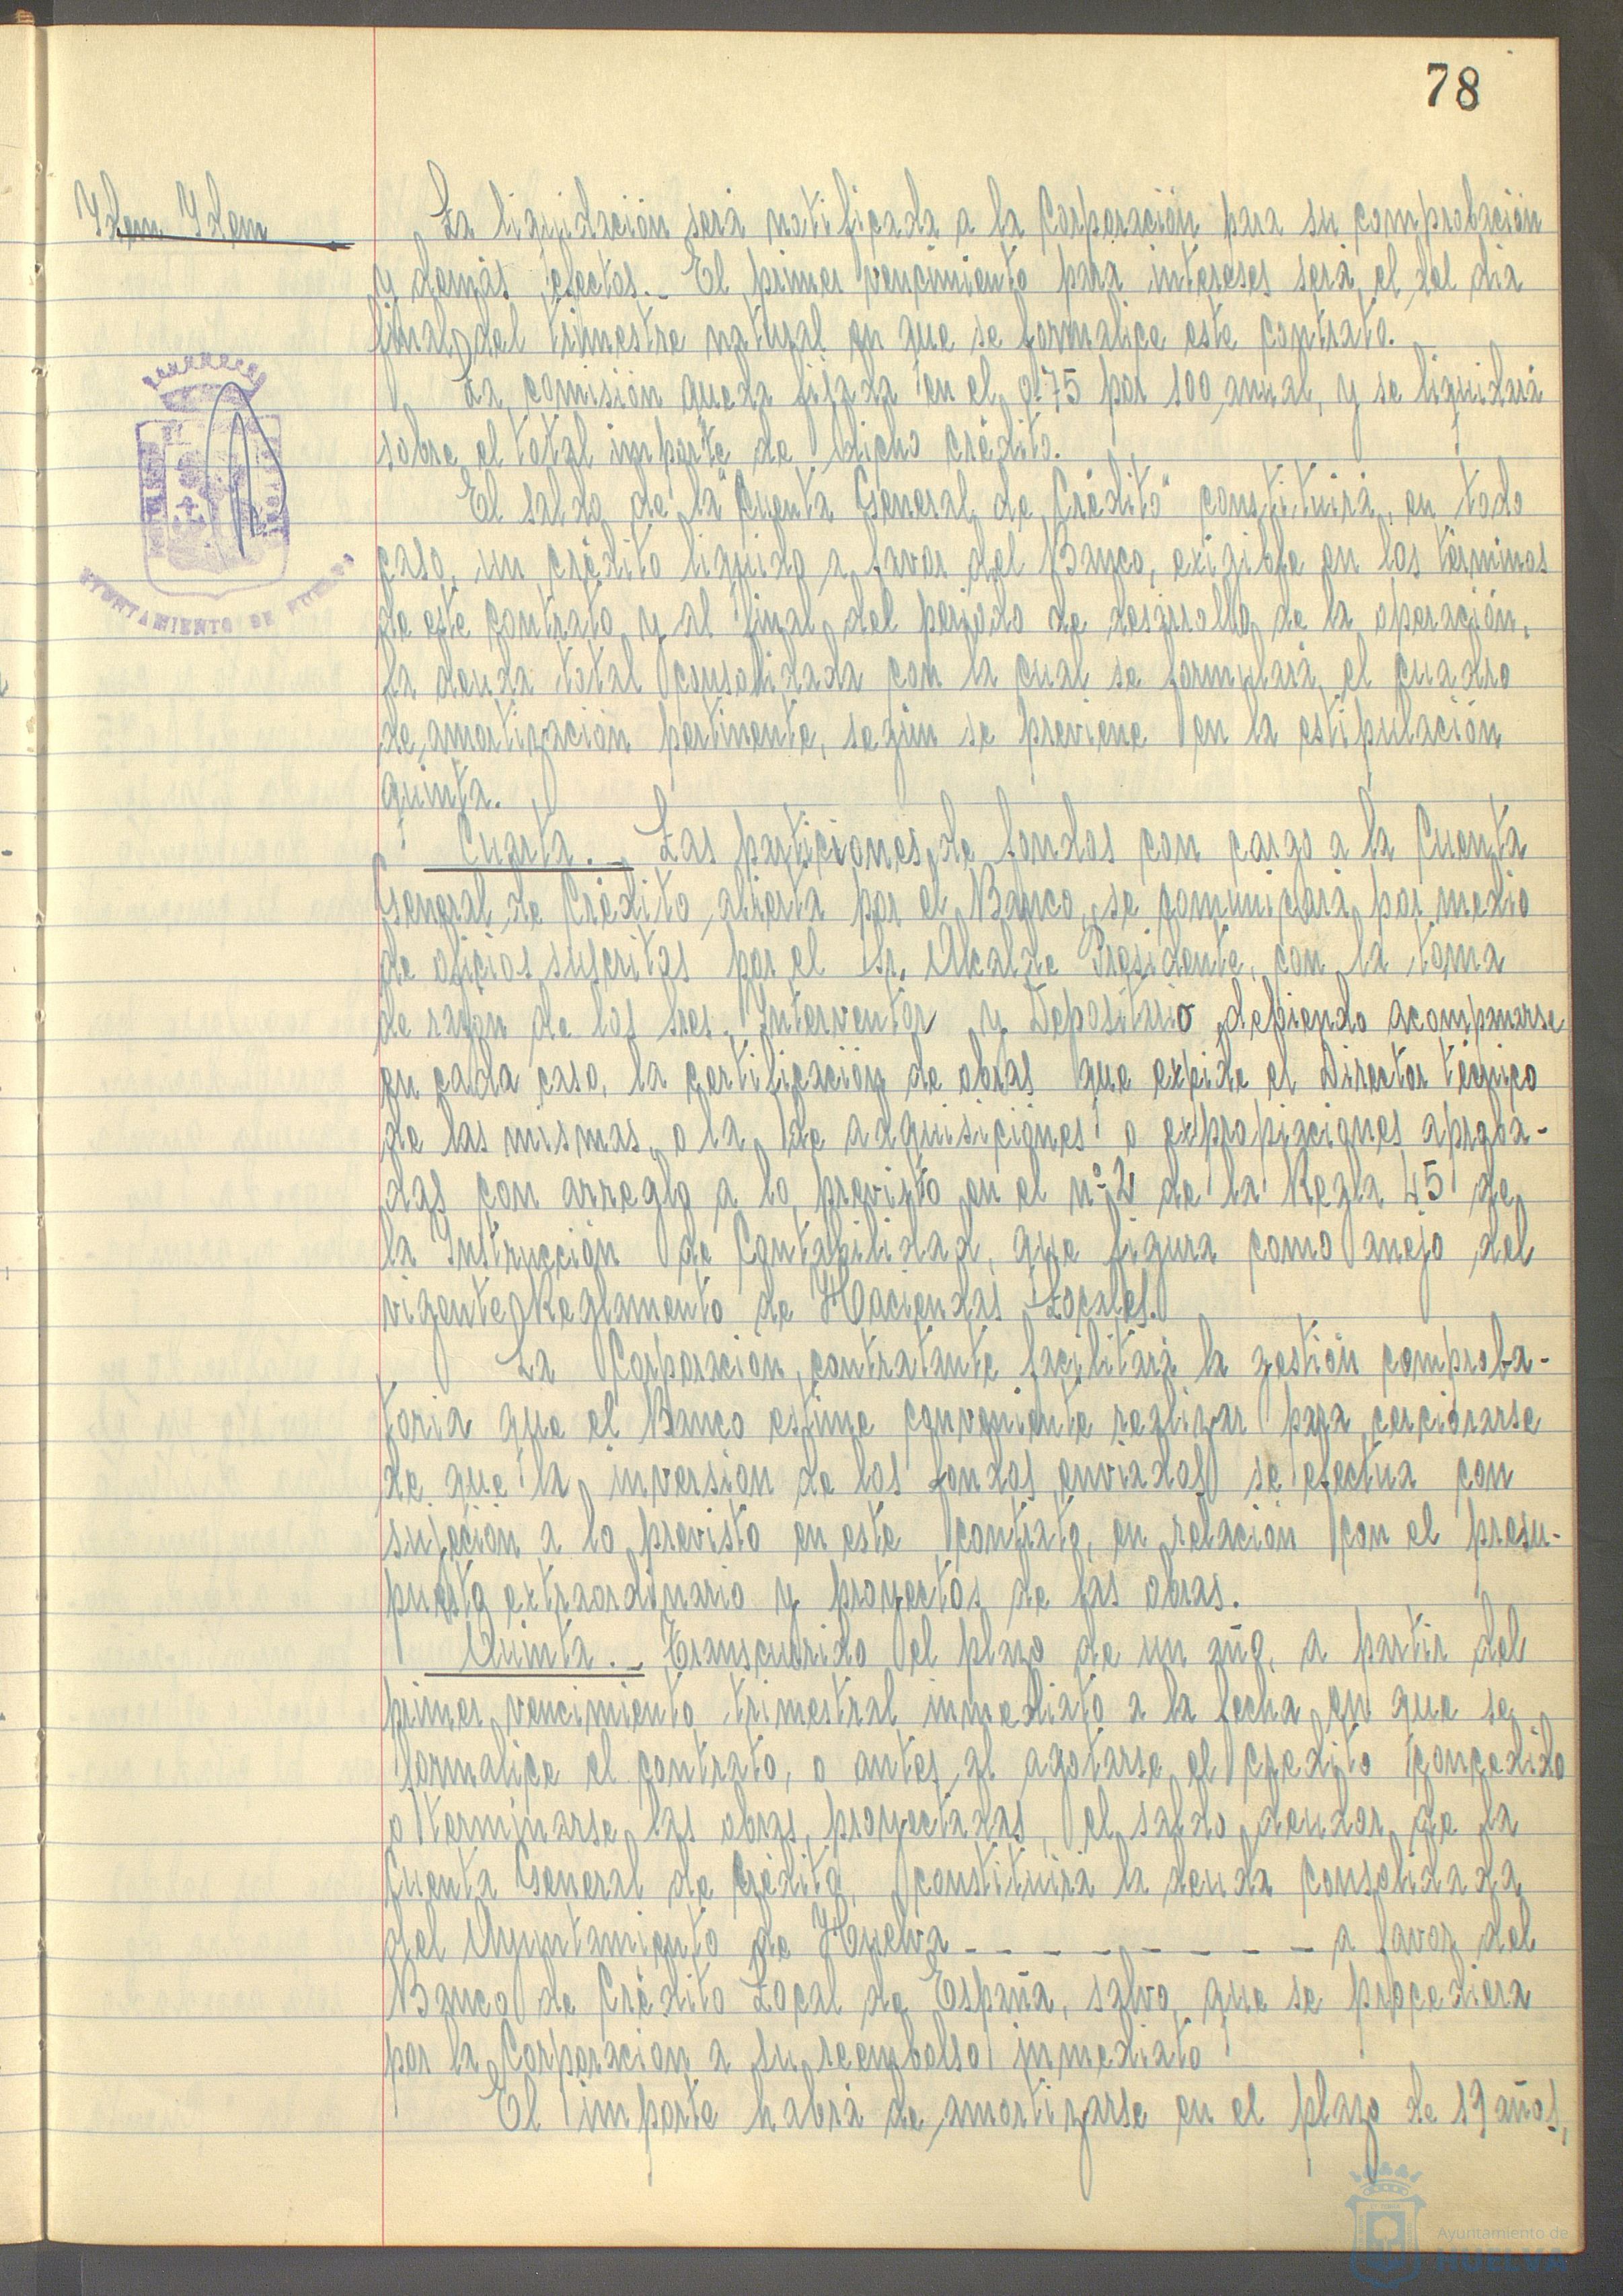 78
Ydem Ydem
La liquidación será notificada a la Corporación para su comprobación
y demás efectos.- El primer vencimiento para intereses será el del dia
final del trimestre natural en que se formalice este contrato.
La comisión queda fijada en el 0'75 por 100 anual, y se liquidará
sobre el total importe de dicho crédito.
El saldo de la "Cuenta General de Crédito" constituirá, en todo
caso, un crédito liquido a favor del Banco, exigible en los términos
de este contrato y al final del periodo de desarrollo de la operación,
la deuda total consolidada con la cual se formulará el cuadro
de amortización pertinente, según se previene en la estipulación
quinta.
Cuarta.- Las particiones de fondos con cargo a la Cuenta
General de Crédito abierta por el Banco, se comunicará por medio
de oficios suscritos por el Sr. Alcalde Presidente, con la toma
de razón de los Sres. Interventor y Depositario debiendo acompañarse
en cada caso, la certificación de obras que expide el Director técnico
de las mismas, o la de adquisiciones o expropiaciones aproba-
das con arreglo a lo previsto en el nº 2 de la Regla 45 de
la Instrucción de Contabilidad, que figura como anejo del
vigente Reglamento de Haciendas Locales.
La Corporación contratante facilitará la gestión comproba-
toria que el Banco estime conveniente realizar para cerciorarse
de que la inversión de los fondos enviados se efectua con
sujeción a lo previsto en este contrato, en relación con el presu-
puesto extraordinario y proyectos de las obras.
Quinta.- Transcurrido el plazo de un año, a partir del
primer vencimiento trimestral inmediato a la fecha en que se
formalice el contrato, o antes al agotarse el crédito concedido
o terminarse las obras proyectadas, el saldo deudor de la
Cuenta General de Crédito, constituirá la deuda consolidada
del Ayuntamiento de Huelva - - - - - - - - - a favor del
Banco de Crédito Local de España, salvo que se procediera
por la Corporación a su reembolso inmediato
El importe habrá de amortizarse en el plazo de 19 años,
AYUNTAMIENTO DE HUELVA
Ayuntamiento de
HUELVA